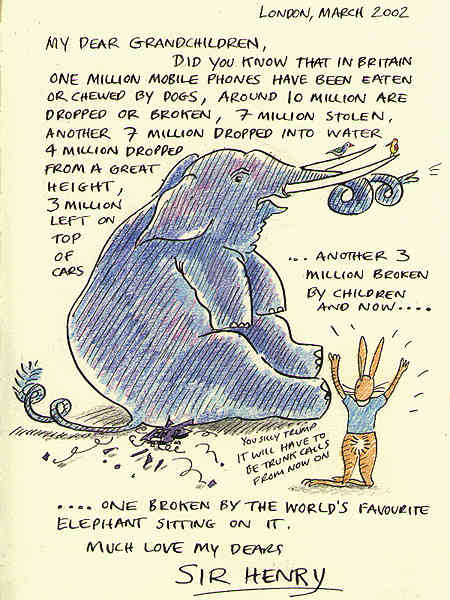 LONDON, MARCH 2002
MY DEAR GRANDCHILDREN,
DID YOU KNOW THAT IN BRITAIN
ONE MILLION MOBILE PHONES HAVE BEEN EATEN
OR CHEWED BY DOGS, AROUND 10 MILLION ARE
DROPPED OR BROKEN, 7 MILLION STOLEN,
ANOTHER 7 MILLION DROPPED INTO WATER
4 MILLION DROPPED
FROM A GREAT
HEIGHT,
3 MILLION
LEFT ON
TOP
OF
CARS
... ANOTHER 3
MILLION BROKEN
BY CHILDREN
AND NOW....
YOU SILLY TRUMP
IT WILL HAVE TO
BE TRUNK CALLS
FROM NOW ON
.... ONE BROKEN BY THE WORLD'S FAVOURITE
ELEPHANT SITTING ON IT.
MUCH LOVE MY DEARS
SIR HENRY